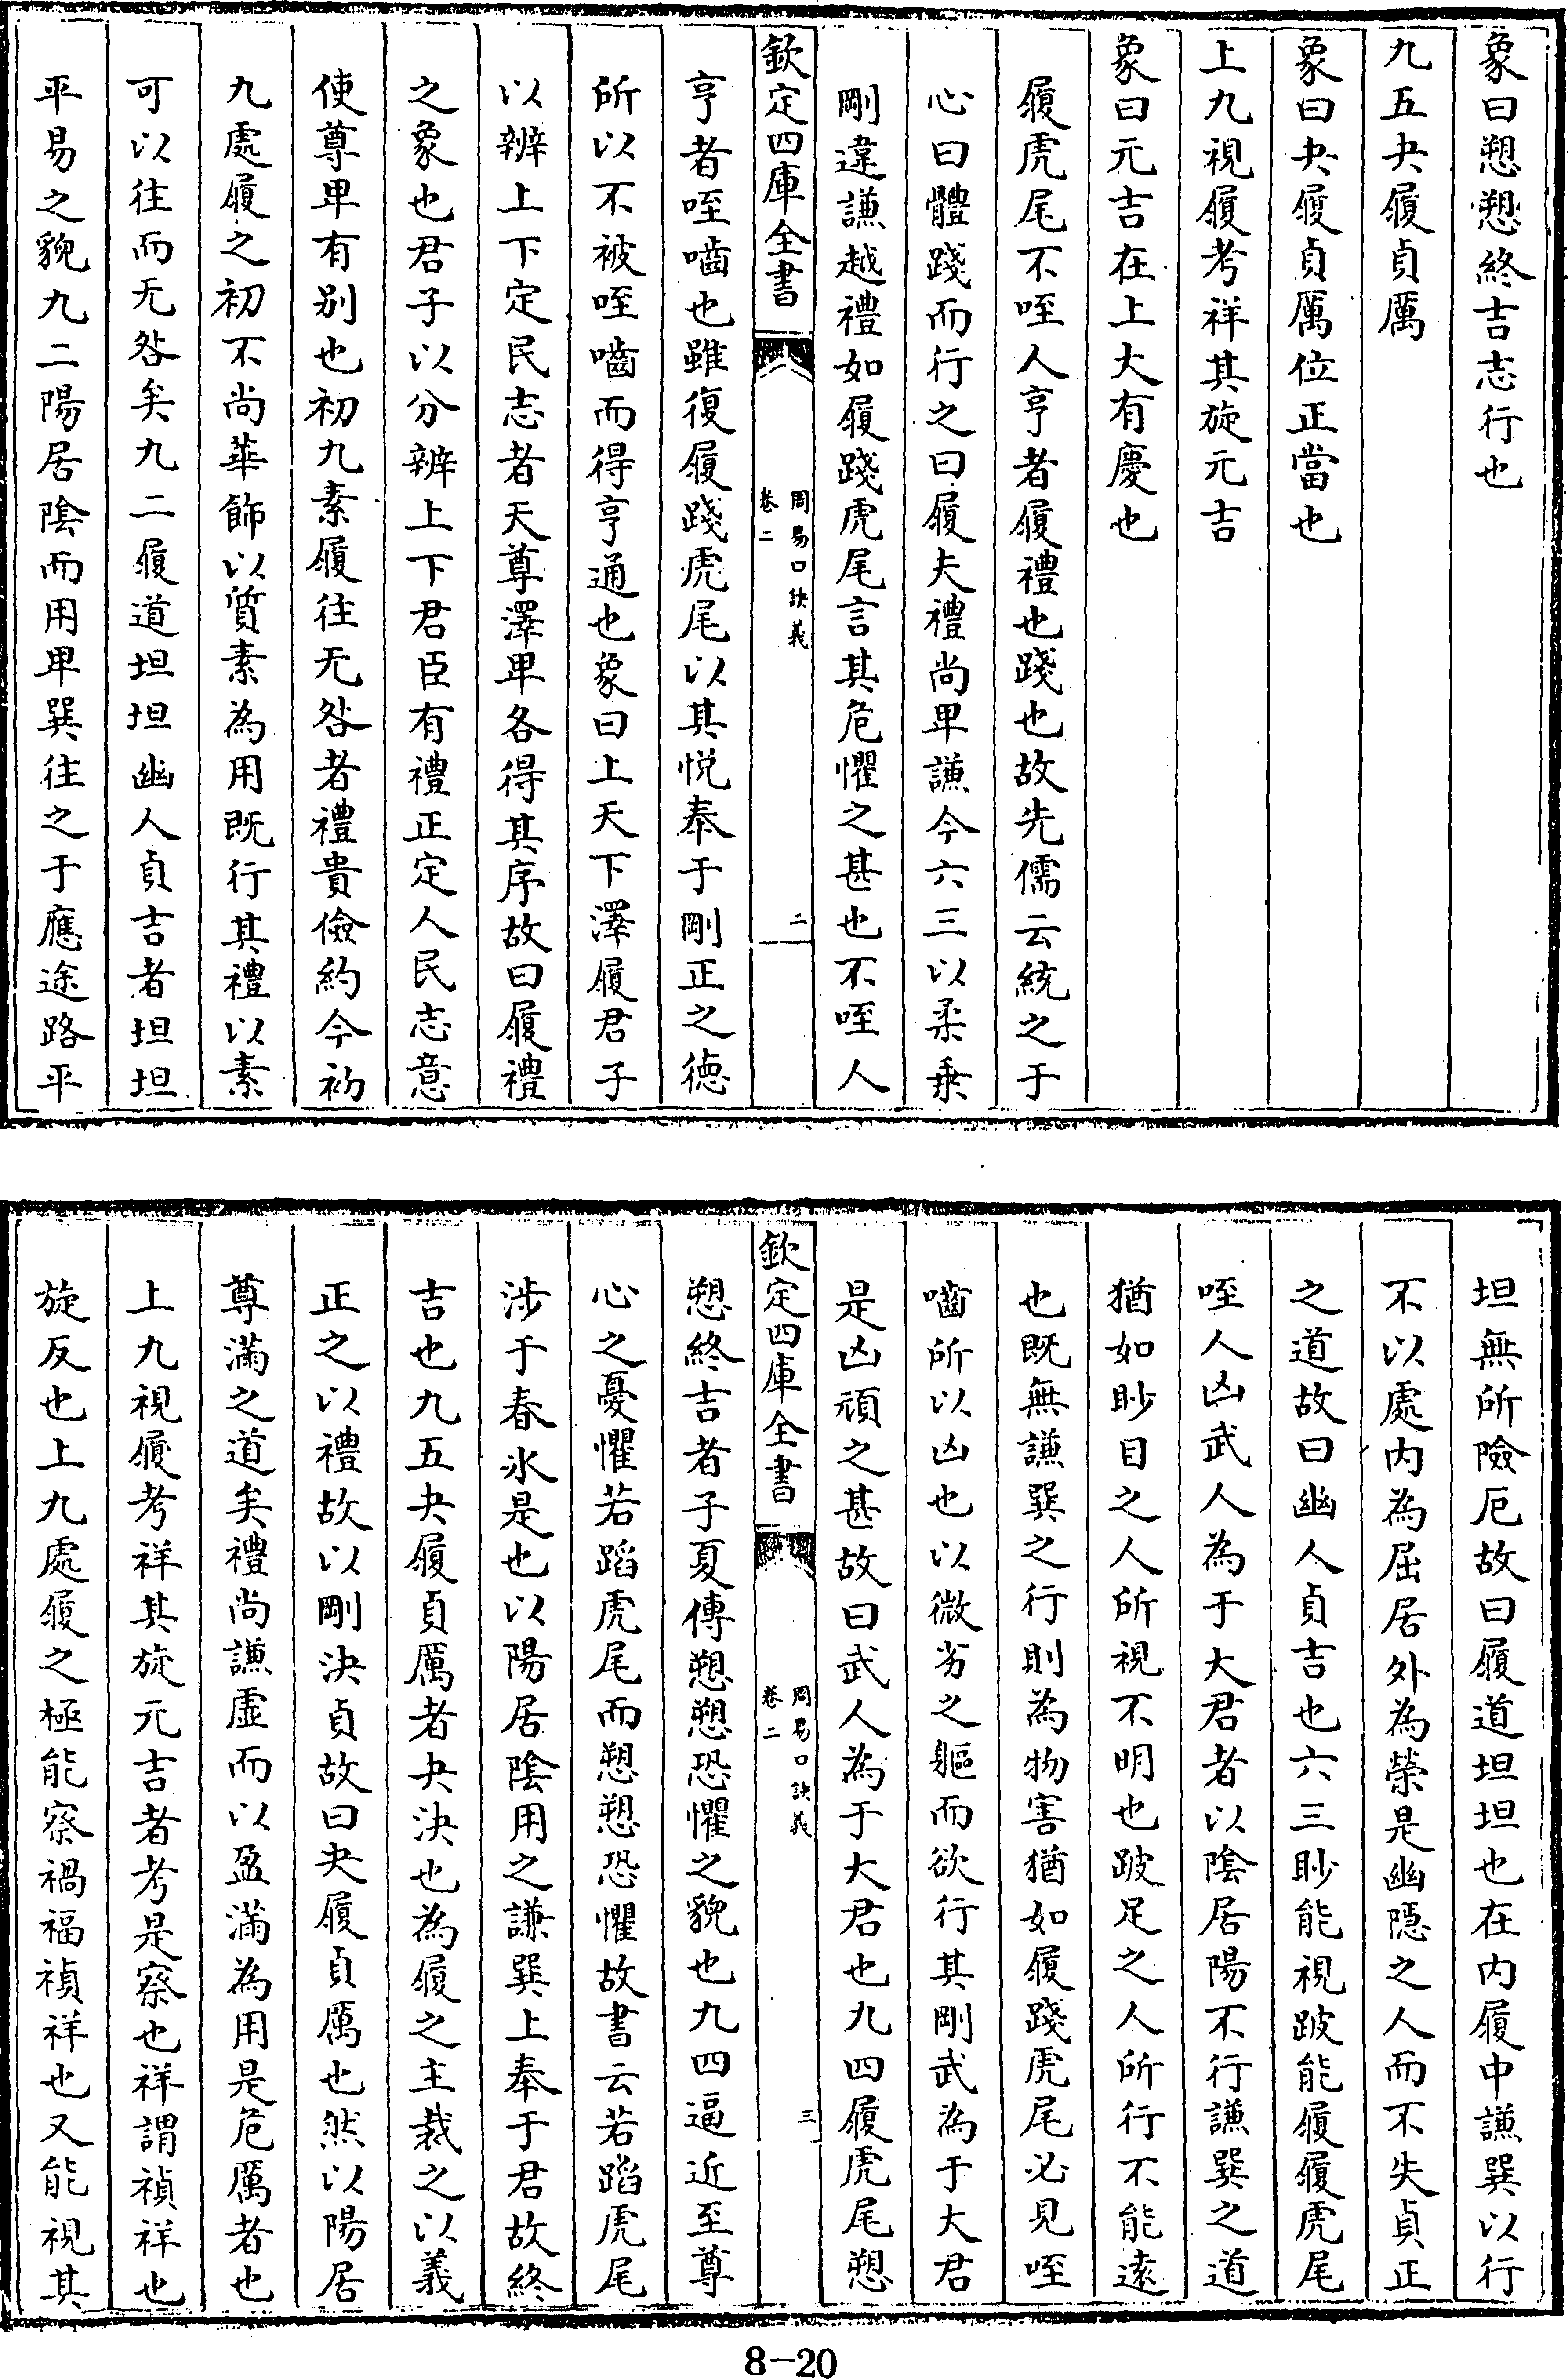 象曰愬愬終吉志行也
九五夬履貞厲
象曰夬履貞厲位正當也
上九視履考祥其旋元吉
象曰元吉在上大有慶也
履虎尾不咥人亨者履禮也踐也故先儒云統之于
心曰體踐而行之曰履夫禮尚卑謙今六三以柔乗
剛違謙越禮如履踐虎尾言其危懼之甚也不咥人
欽定四庫全書
周易口訣義
卷二
二
亨者咥嚙也雖復履踐虎尾以其悦奉于剛正之徳
所以不被咥嚙而得亨通也象曰上天下澤履君子
以辨上下定民志者天尊澤卑各得其序故曰履禮
之象也君子以分辨上下君臣有禮正定人民志意
使尊卑有别也初九素履往无咎者禮貴儉約今初
九處履之初不尚華飾以質素為用既行其禮以素
可以往而无咎矣九二履道坦坦幽人貞吉者坦坦
平易之貌九二陽居陰而用卑巽往之于應途路平
坦無所險厄故曰履道坦坦也在内履中謙巽以行
不以處内為屈居外為榮是幽隱之人而不失貞正
之道故曰幽人貞吉也六三眇能視跛能履履虎尾
咥人凶武人為于大君者以陰居陽不行謙巽之道
猶如眇目之人所視不明也跛足之人所行不能逺
也既無謙巽之行則為物害猶如履踐虎尾必見咥
嚙所以凶也以微劣之軀而欲行其剛武為于大君
是凶頑之甚故曰武人為于大君也九四履虎尾愬
欽定四庫全書
周易口訣義
卷二
三
愬終吉者子夏傳愬愬恐懼之貌也九四逼近至尊
心之憂懼若蹈虎尾而愬愬恐懼故書云若蹈虎尾
涉于春氷是也以陽居陰用之謙巽上奉于君故終
吉也九五夬履貞厲者夬決也為履之主裁之以義
正之以禮故以剛決貞故曰夬履貞厲也然以陽居
尊滿之道矣禮尚謙虛而以盈滿為用是危厲者也
上九視履考祥其旋元吉者考是察也祥謂禎祥也
旋反也上九處履之極能察禍福禎祥也又能視其
8-20